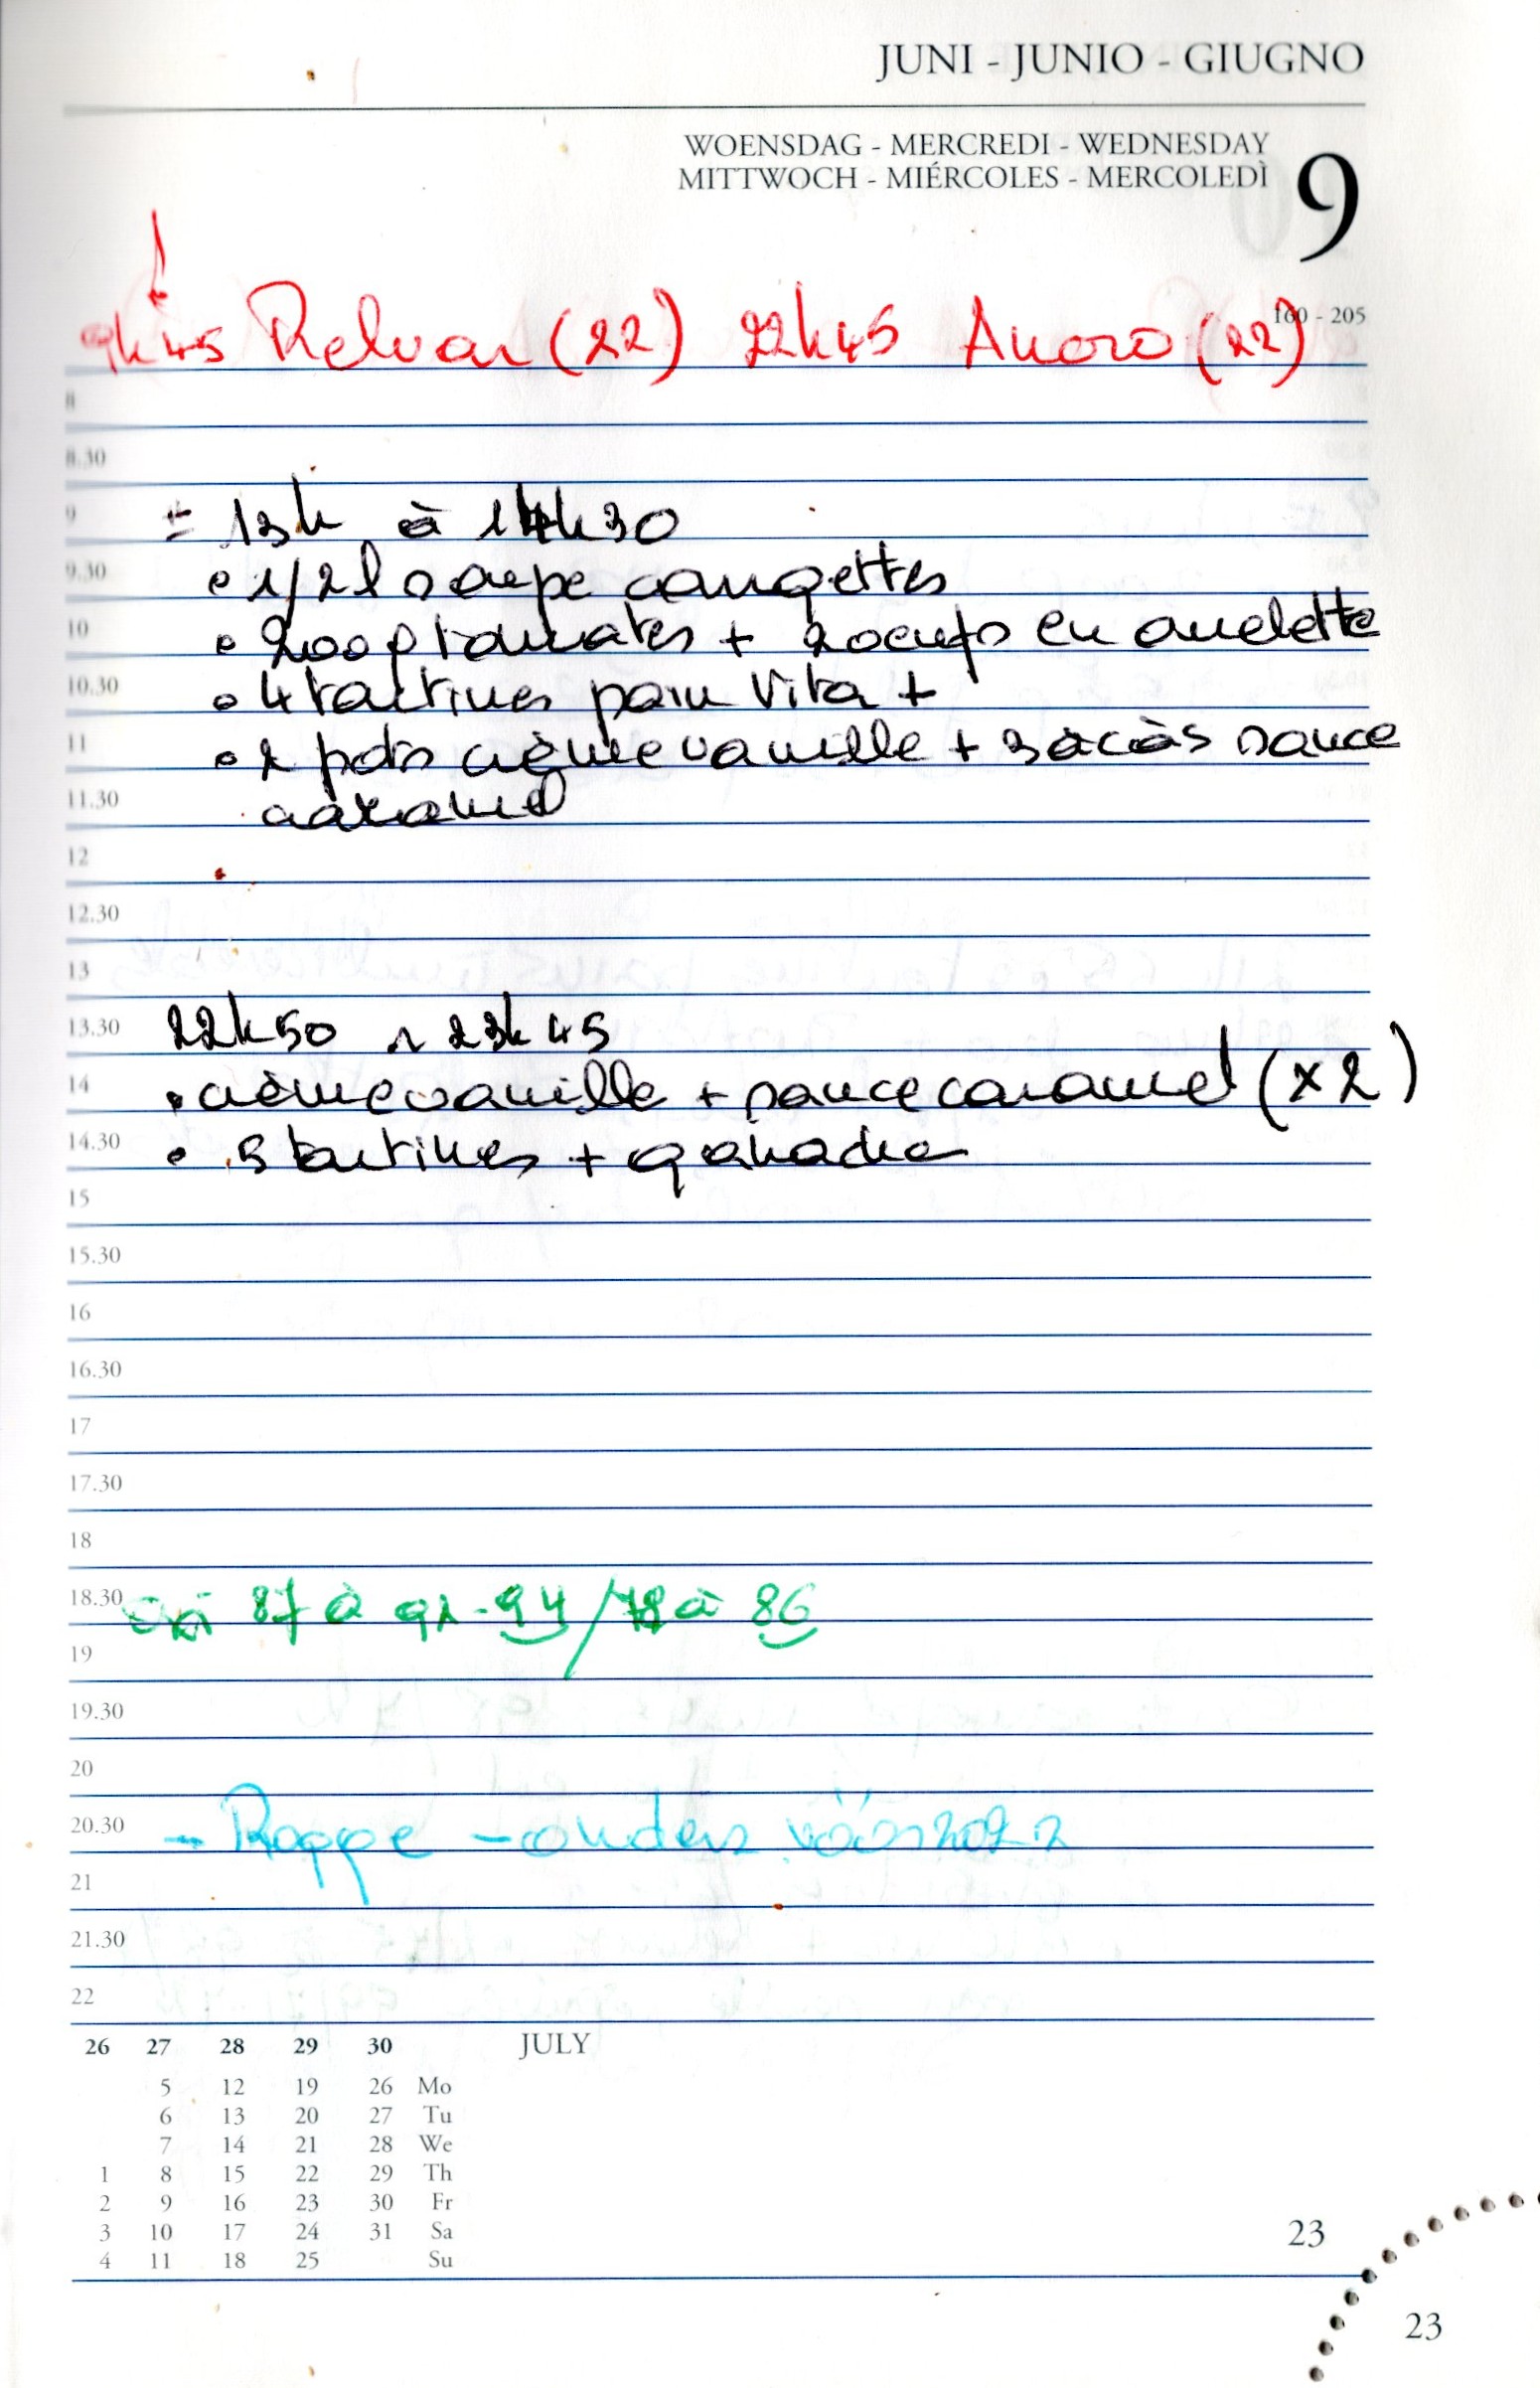 JUNI - JUNIO - GIUGNO
WOENSDAG - MERCREDI - WEDNESDAY
MITTWOCH - MIÉRCOLES - MERCOLEDÌ
9
160 - 205
9h45 Relvar (22) 22h45 Anoro (22)
8
8.30
9 ± 13h à 14h30
9.30 • 1/2 l soupe courgettes
10 • 200g tomates + 2 oeufs en omelette
10.30 • 4 tartines pain Vita +
11 • 2 pots crème vanille + 3 à càs sauce
11.30 caramel
12
12.30
13
13.30 22h50 à 23h45
14 • crème vanille + sauce caramel (x2)
14.30 • 3 tartines +
15
15.30
16
16.30
17
17.30
18
18.30 87 à 92-94/78 à 86
19
19.30
20
20.30
21
21.30
22
26 27 28 29 30 JULY
5 12 19 26 Mo
6 13 20 27 Tu
7 14 21 28 We
1 8 15 22 29 Th
2 9 16 23 30 Fr
3 10 17 24 31 Sa
4 11 18 25 Su
23
23